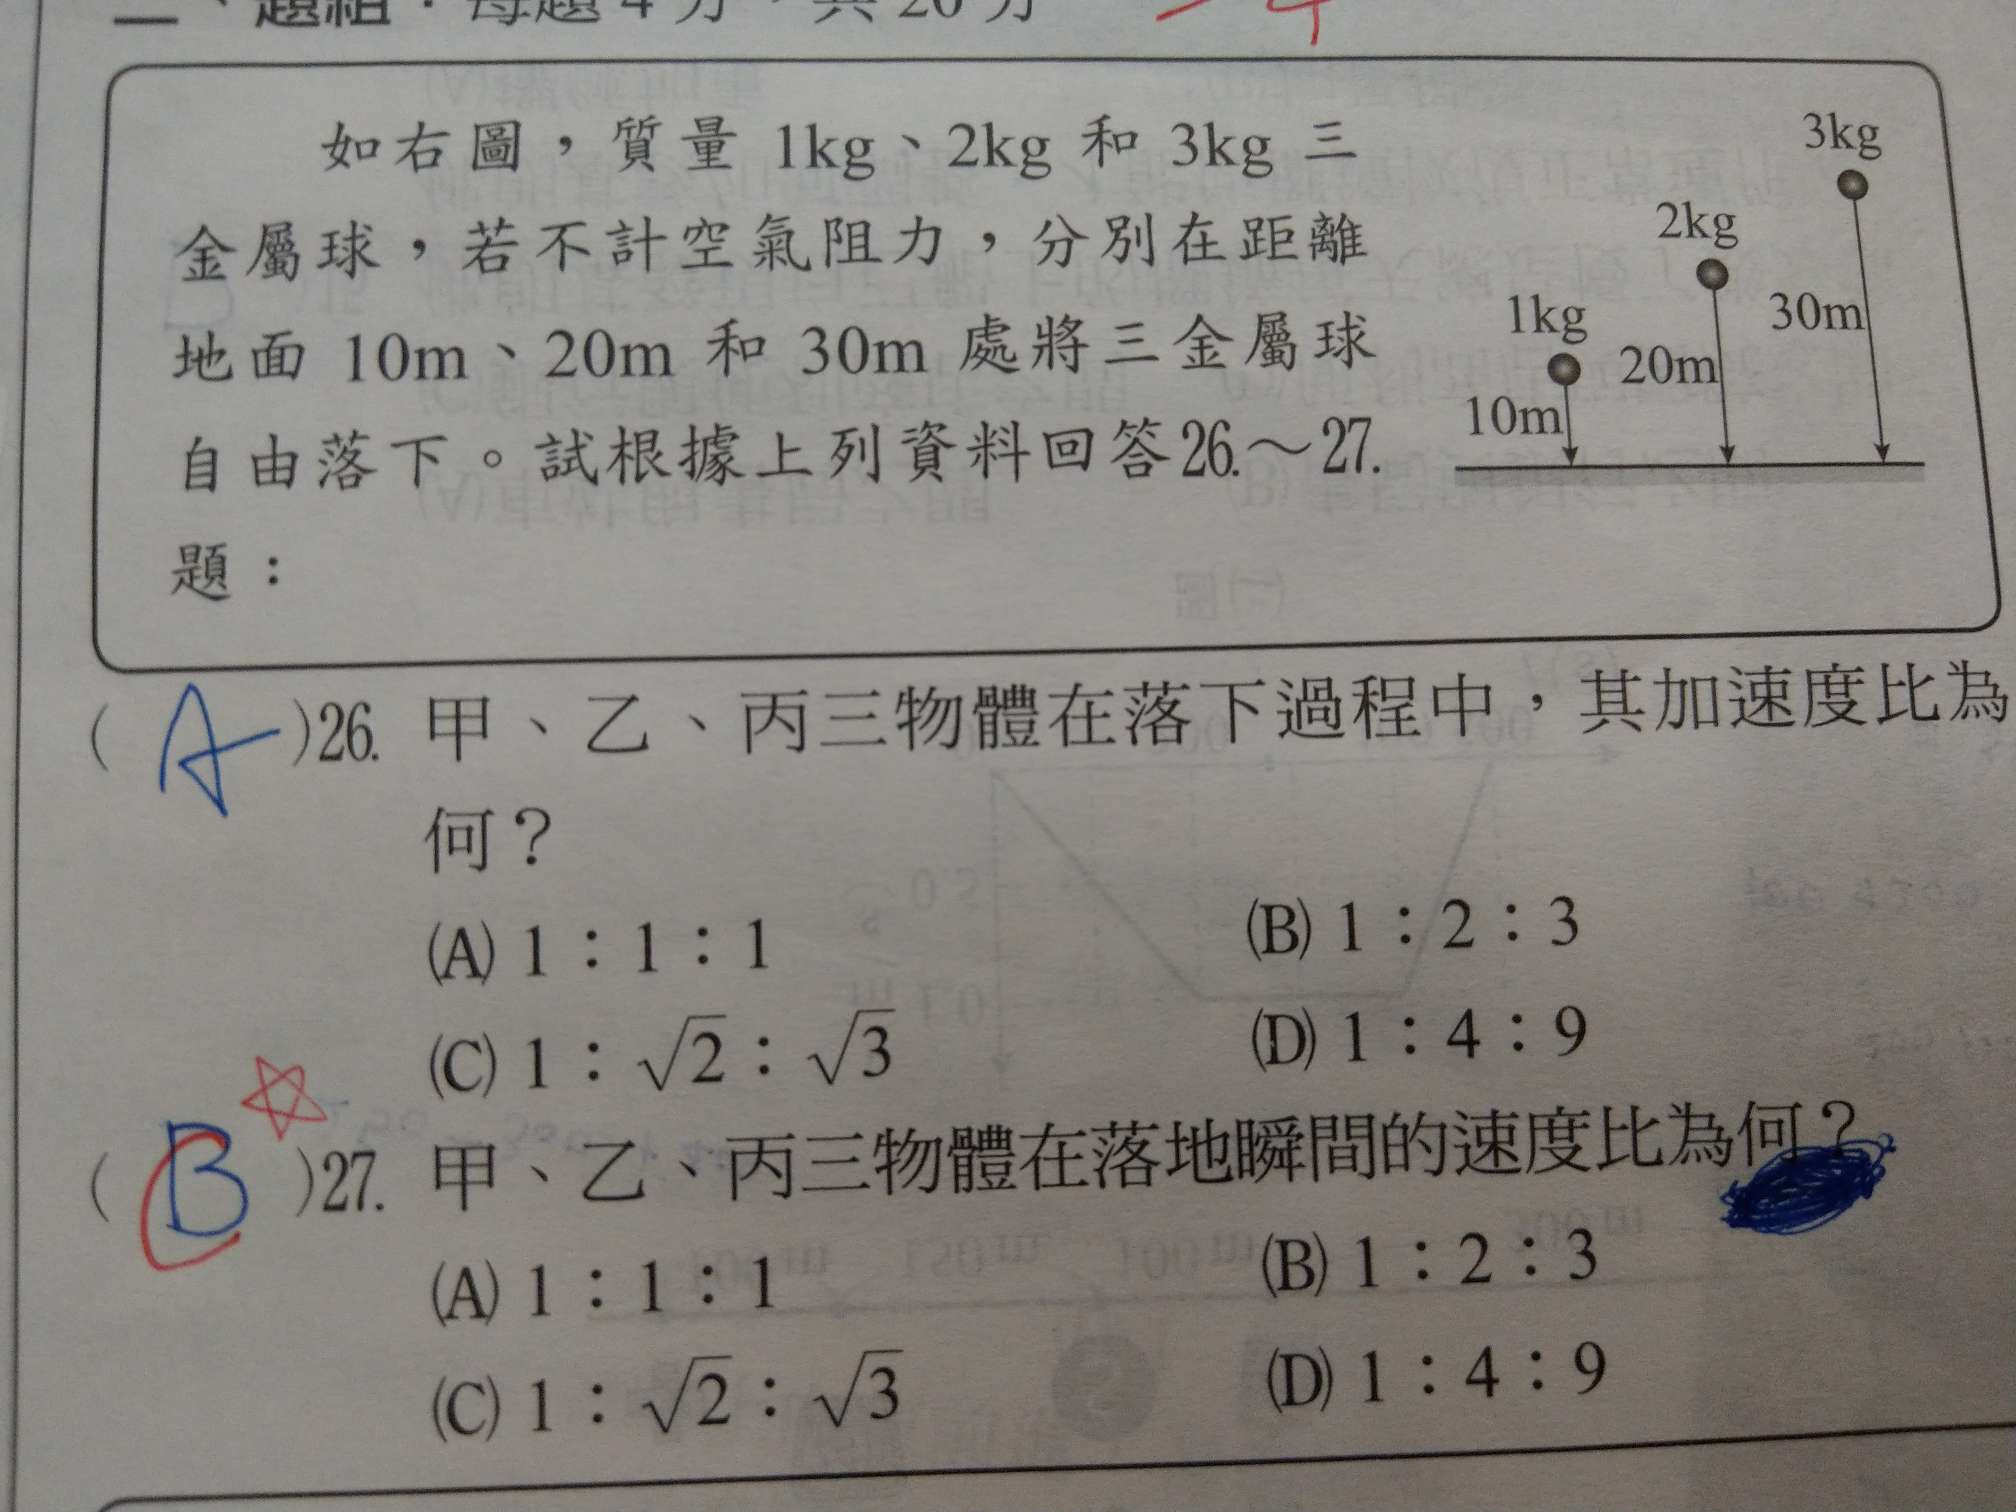 二、題組：每題 4 分，共 20 分
-4
如右圖，質量 1kg、2kg 和 3kg 三
金屬球，若不計空氣阻力，分別在距離
地面 10m、20m 和 30m 處將三金屬球
自由落下。試根據上列資料回答26.～27.
題：
3kg
2kg
1kg
30m
20m
10m
( A )26. 甲、乙、丙三物體在落下過程中，其加速度比為
何？
(A) 1：1：1 (B) 1：2：3
(C) 1：√2：√3 (D) 1：4：9
( B )27. 甲、乙、丙三物體在落地瞬間的速度比為何？
(A) 1：1：1 (B) 1：2：3
(C) 1：√2：√3 (D) 1：4：9